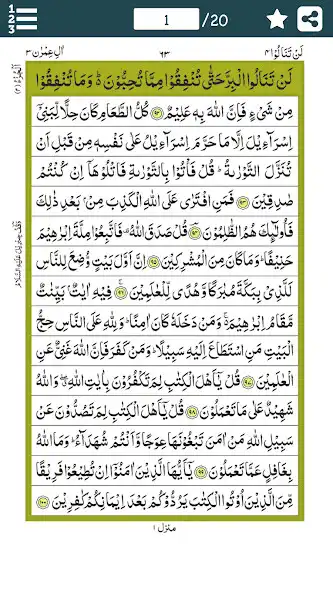 1 2 3
1 /20
لَنْ تَنَالُوا ۴
۶۳
اٰلِ عِمْرٰن ۳
لَنْ تَنَالُوا الْبِرَّ حَتّٰى تُنْفِقُوْا مِمَّا تُحِبُّوْنَ ؕ وَمَا تُنْفِقُوْا
مِنْ شَیْءٍ فَاِنَّ اللّٰهَ بِهٖ عَلِیْمٌ ﴿۹۲﴾ كُلُّ الطَّعَامِ كَانَ حِلًّا لِّبَنِیْۤ
اِسْرَآءِیْلَ اِلَّا مَا حَرَّمَ اِسْرَآءِیْلُ عَلٰى نَفْسِهٖ مِنْ قَبْلِ اَنْ
تُنَزَّلَ التَّوْرٰىةُ ؕ قُلْ فَاْتُوْا بِالتَّوْرٰىةِ فَاتْلُوْهَاۤ اِنْ كُنْتُمْ
صٰدِقِیْنَ ﴿۹۳﴾ فَمَنِ افْتَرٰى عَلَى اللّٰهِ الْكَذِبَ مِنْۢ بَعْدِ ذٰلِكَ
فَاُولٰٓئِكَ هُمُ الظّٰلِمُوْنَ ﴿۹۴﴾ قُلْ صَدَقَ اللّٰهُ ۫ فَاتَّبِعُوْا مِلَّةَ اِبْرٰهِیْمَ
حَنِیْفًا ؕ وَمَا كَانَ مِنَ الْمُشْرِكِیْنَ ﴿۹۵﴾ اِنَّ اَوَّلَ بَیْتٍ وُّضِعَ لِلنَّاسِ
لَلَّذِیْ بِبَكَّةَ مُبٰرَكًا وَّهُدًى لِّلْعٰلَمِیْنَ ﴿۹۶﴾ فِیْهِ اٰیٰتٌۢ بَیِّنٰتٌ
مَّقَامُ اِبْرٰهِیْمَ ۚ۬ وَمَنْ دَخَلَهٗ كَانَ اٰمِنًا ؕ وَلِلّٰهِ عَلَى النَّاسِ حِجُّ
الْبَیْتِ مَنِ اسْتَطَاعَ اِلَیْهِ سَبِیْلًا ؕ وَمَنْ كَفَرَ فَاِنَّ اللّٰهَ غَنِیٌّ عَنِ
الْعٰلَمِیْنَ ﴿۹۷﴾ قُلْ یٰۤاَهْلَ الْكِتٰبِ لِمَ تَكْفُرُوْنَ بِاٰیٰتِ اللّٰهِ ۖۗ وَاللّٰهُ
شَهِیْدٌ عَلٰى مَا تَعْمَلُوْنَ ﴿۹۸﴾ قُلْ یٰۤاَهْلَ الْكِتٰبِ لِمَ تَصُدُّوْنَ عَنْ
سَبِیْلِ اللّٰهِ مَنْ اٰمَنَ تَبْغُوْنَهَا عِوَجًا وَّاَنْتُمْ شُهَدَآءُ ؕ وَمَا اللّٰهُ
بِغَافِلٍ عَمَّا تَعْمَلُوْنَ ﴿۹۹﴾ یٰۤاَیُّهَا الَّذِیْنَ اٰمَنُوْۤا اِنْ تُطِیْعُوْا فَرِیْقًا
مِّنَ الَّذِیْنَ اُوْتُوا الْكِتٰبَ یَرُدُّوْكُمْ بَعْدَ اِیْمَانِكُمْ كٰفِرِیْنَ ﴿۱۰۰﴾
منزل ۱